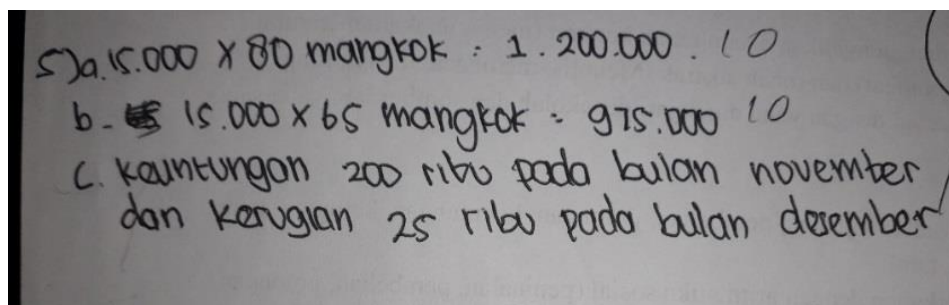 5) a. 15.000 x 80 mangkok = 1.200.000. 10
b. 15.000 x 65 mangkok = 975.000 10
c. kauntungan 200 ribu pada bulan november
dan kerugian 25 ribu pada bulan desember